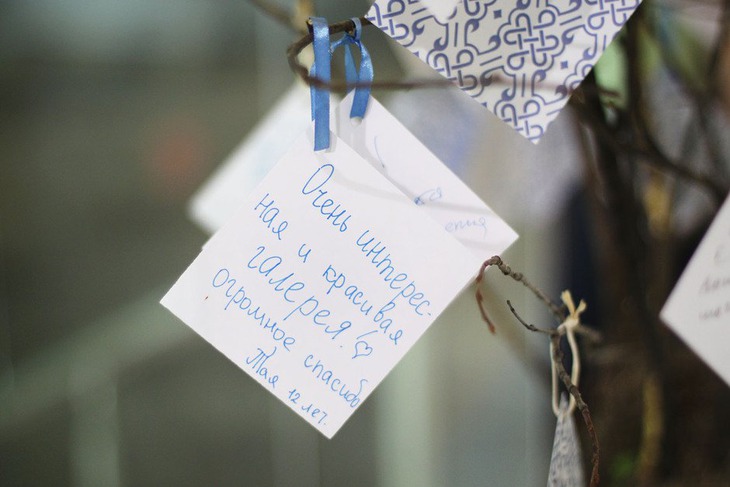 Очень интерес-
ная и красивая
галерея!
огромное спасибо
Тая 12 лет.